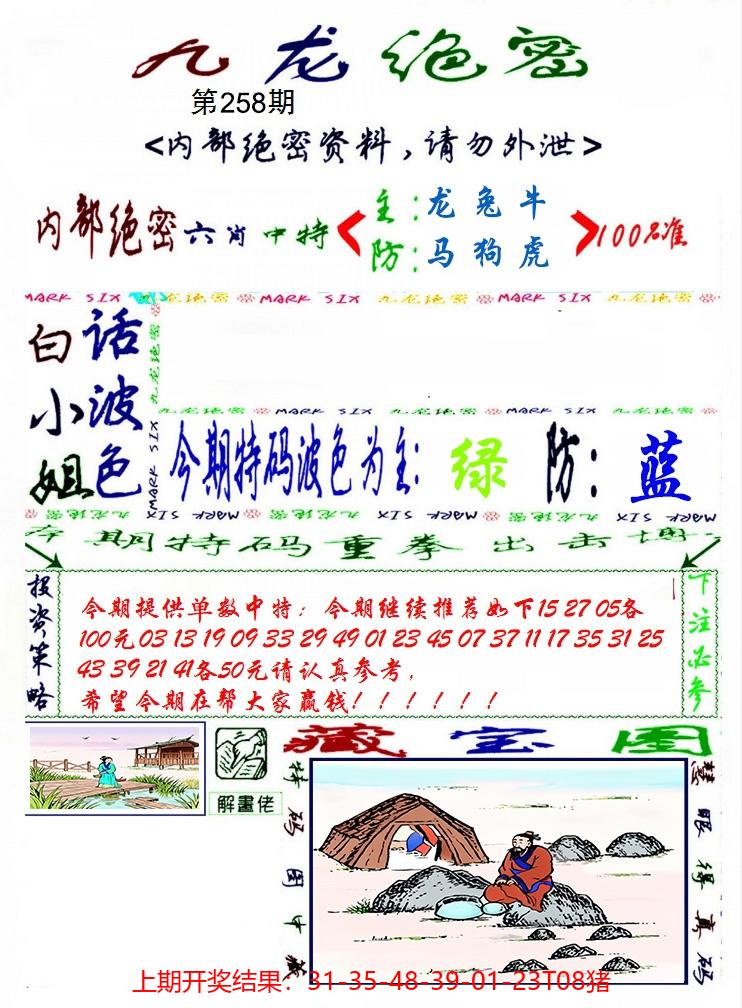 九龙绝密
第258期
<内部绝密资料,请勿外泄>
内部绝密六肖中特
主:龙兔牛
防:马狗虎
100%准
MARK SIX 九龙绝密 MARK SIX 九龙绝密 MARK SIX 九龙绝密
白小姐
话波色
九龙绝密
MARK SIX
九龙绝密 MARK SIX 九龙绝密 MARK SIX 九龙绝密
今期特码波色为主:绿 防:蓝
MARK SIX 九龙绝密 MARK SIX 九龙绝密 MARK SIX 九龙绝密
本期特码重拳出击博
投资策略
今期提供单数中特:今期继续推荐如下15 27 05各
100元03 13 19 09 33 29 49 01 23 45 07 37 11 17 35 31 25
43 39 21 41各50元请认真参考,
希望今期在帮大家赢钱!!!!!!
下注必参
藏宝图
解畫佬
特码图中藏
慧眼得真码
上期开奖结果:31-35-48-39-01-23T08猪